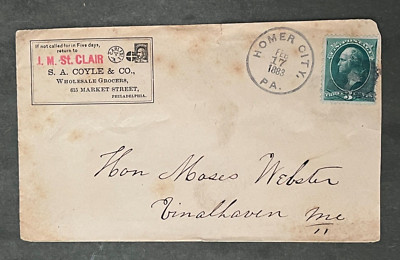 If not called for in Five days,
return to
J. M. St. CLAIR
S. A. COYLE & CO.,
WHOLESALE GROCERS,
615 MARKET STREET,
PHILADELPHIA.
HOMER CITY,
FEB
17
1883
PA.
3
Hon Moses Webster
Vinalhaven Me